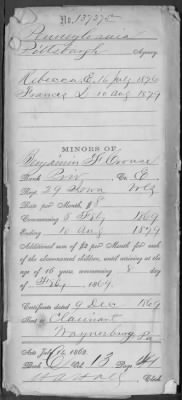 No. 137375
Pennsylvania
Pittsburgh Agency.
Rebecca E. 16 July 1876
Frances L 10 Aug 1879
MINORS OF
Benjamin F.
Rank Priv Co. E
Regt 29 Iowa Vols
Rate per Month, $8
Commencing 8 Feby 1869
Ending 10 Aug 1879
Additional sum of $2 per Month for each
of the abovenamed children, until arriving at the
age of 16 years, commencing 8 day
of Feby 1869.
Certificate dated 9 Dec 1869
Sent to Claimant
Waynesburg, Pa
Act July 14, 1862.
Book Vol. 13 Page
Clerk